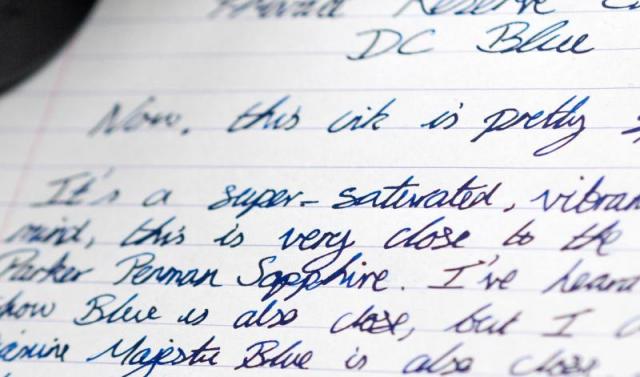 Private Reserve
DC Blue
Now, this ink is pretty
It's a super-saturated, vibran
mind, this is very close to the
Parker Penman Sapphire. I've heard
how Blue is also close, but I
Majestic Blue is also close.